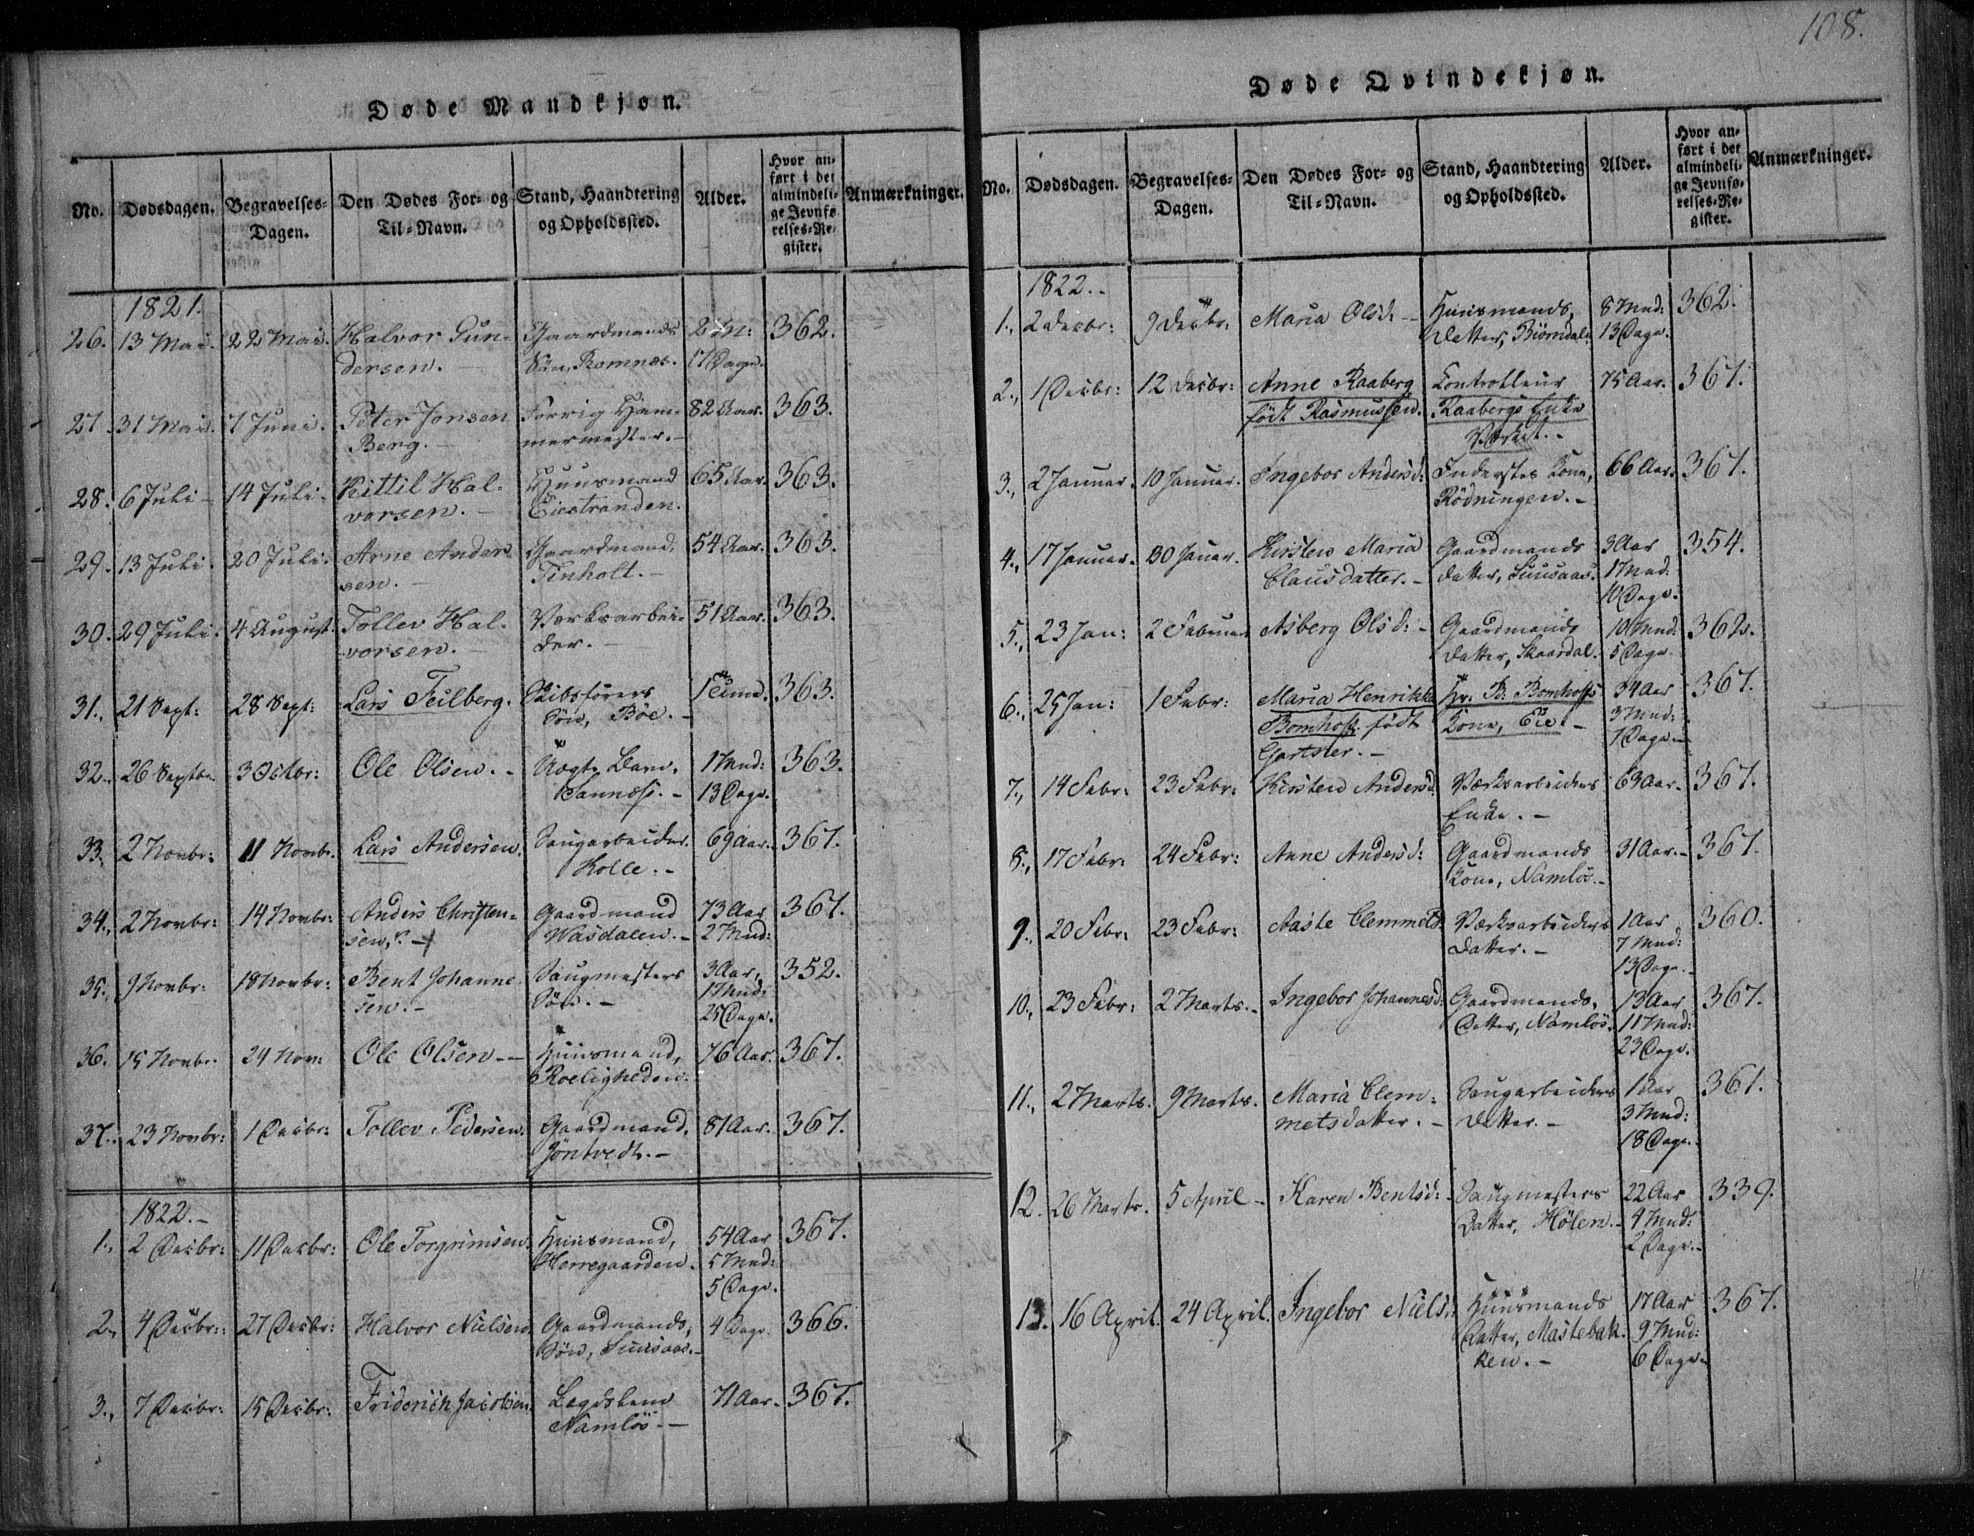 108.
Døde Mandkjøn.
No. Dødsdagen. Begravelses-Dagen. Den Dødes For- og Til-Navn. Stand, Haandtering og Opholdssted. Alder. Hvor anført i det almindelige Jevnførelses-Register. Anmærkninger.
1821.
26. 13 Mai. 22 Mai. Halvor Gun- Gaardmands 2 M: 362.
dersen. Søn, Romnæs. 17 Dage.
27. 31 Mai. 7 Juni. Peter Jonsen Forrig Ham- 82 Aar. 363.
Berg. mermester.
28. 6 Juli 14 Juli. Kittil Hal- Huusmand 65 Aar. 363.
vorsen. Eiestranden.
29. 13 Juli. 20 Juli. Arne Ander- Gaardmand, 54 Aar. 363.
sen. Tinholt.
30. 29 Juli. 4 August. Tollev Hal- Værksarbei- 51 Aar. 363.
vorsen. der.
31. 21 Sept: 28 Sept: Lars Feilberg. Skibsførers 363.
Søn, Böe.
32. 26 Septbr. 3 Octbr: Ole Olsen. Uægte Barn, 1 Mnd: 363.
Sannæs. 13 Dage.
33. 2 Novbr: 11 Novbr. Lars Andersen. Saugarbeider 69 Aar. 367.
Holle.
34. 2 Novbr: 14 Novbr: Anders Christen- Gaardmand 73 Aar 367.
sen, Wasdalen. 2 Mnd:
35. 9 Novbr: 18 Novbr: Bent Johanne- Saugmesters 3 Aar, 352.
sen. Søn. 17 Mnd:
25 Dage.
36. 15 Novbr. 24 Nov: Ole Olsen Huusmand, 76 Aar. 367.
Roeligheden.
37. 23 Novbr: 1 Decbr: Tollev Pedersen. Gaardmand. 81 Aar. 367.
Jöntvedt.
1822.
1. 2 Decbr: 11 Decbr: Ole Torgrimsen. Huusmand, 54 Aar 367.
Herregaarden. 5 Mnd:
5 Dage.
2. 4 Decbr: 27 Decbr: Halvor Nielsen. Gaardmands, 4 Dage 366.
Søn, Suusaas.
3. 7 Decbr: 15 Decbr: Friderich Jacobsen. Lægdslem 71 Aar. 367.
Namlös.
Døde Qvindekjøn.
No. Dødsdagen. Begravelses-Dagen. Den Dødes For- og Til-Navn. Stand, Haandtering og Opholdssted. Alder. Hvor anført i det almindelige Jevnførelses-Register. Anmærkninger.
1822.
1. 2 Decbr: 9 Decbr: Maria Olsd: Huusmands, 8 Mnd: 362.
Datter, Biörndal. 13 Dage.
2. 1 Decbr: 12 Decbr: Anne Raaberg Controlleur 75 Aar. 367.
født Rasmussen. Raabergs Enke
Værket.
3. 2 Januar. 10 Januar. Ingebor Andersd: Inderstes Kone, 66 Aar. 367.
Rödningen.
4. 17 Januar. 30 Januar. Kirsten Maria Gaardmands 3 Aar 354.
Clausdatter. Datter, Suusaas. 1 Mnd.
10 Dage.
5. 23 Jan: 2 Februar Asberg Olsd: Gaardmands 10 Mnd: 362.
Datter, Skaardal. 5 Dage.
6. 25 Jan: 1 Febr: Maria Henrikke Hr. B. Bomhoffs 34 Aar 367.
Bomhoff født Kone, Eie 3 Mnd:
Gartsler. 7 Dage.
7. 14 Febr: 23 Febr: Kirsten Andersd. Værksarbeiders 63 Aar. 367.
Enke.
8. 17 Febr: 24 Febr: Anne Andersd: Gaardmands 31 Aar. 367.
Kone, Namlös.
9. 20 Febr: 23 Febr: Aaste Clemmetsd. Værksarbeiders 1 Aar 360.
Datter. 7 Mnd:
13 Dage.
10. 23 Febr: 2 Marts. Ingebor Johannesd: Gaardmands, 13 Aar 367.
Datter, Namlös. 11 Mnd:
23 Dage.
11. 2 Marts. 9 Marts. Maria Clem- Saugarbeiders 1 Aar 361.
metsdatter. Datter. 3 Mnd:
18 Dage.
12. 26 Marts. 5 April Karen Bentsd: Saugmesters 22 Aar 339.
Datter, Hölen. 4 Mnd:
2 Dage.
13. 16 April. 24 April. Ingebor Nielsd: Huusmands 17 Aar 367.
Datter, Mastebak- 9 Mnd:
ken. 6 Dage.